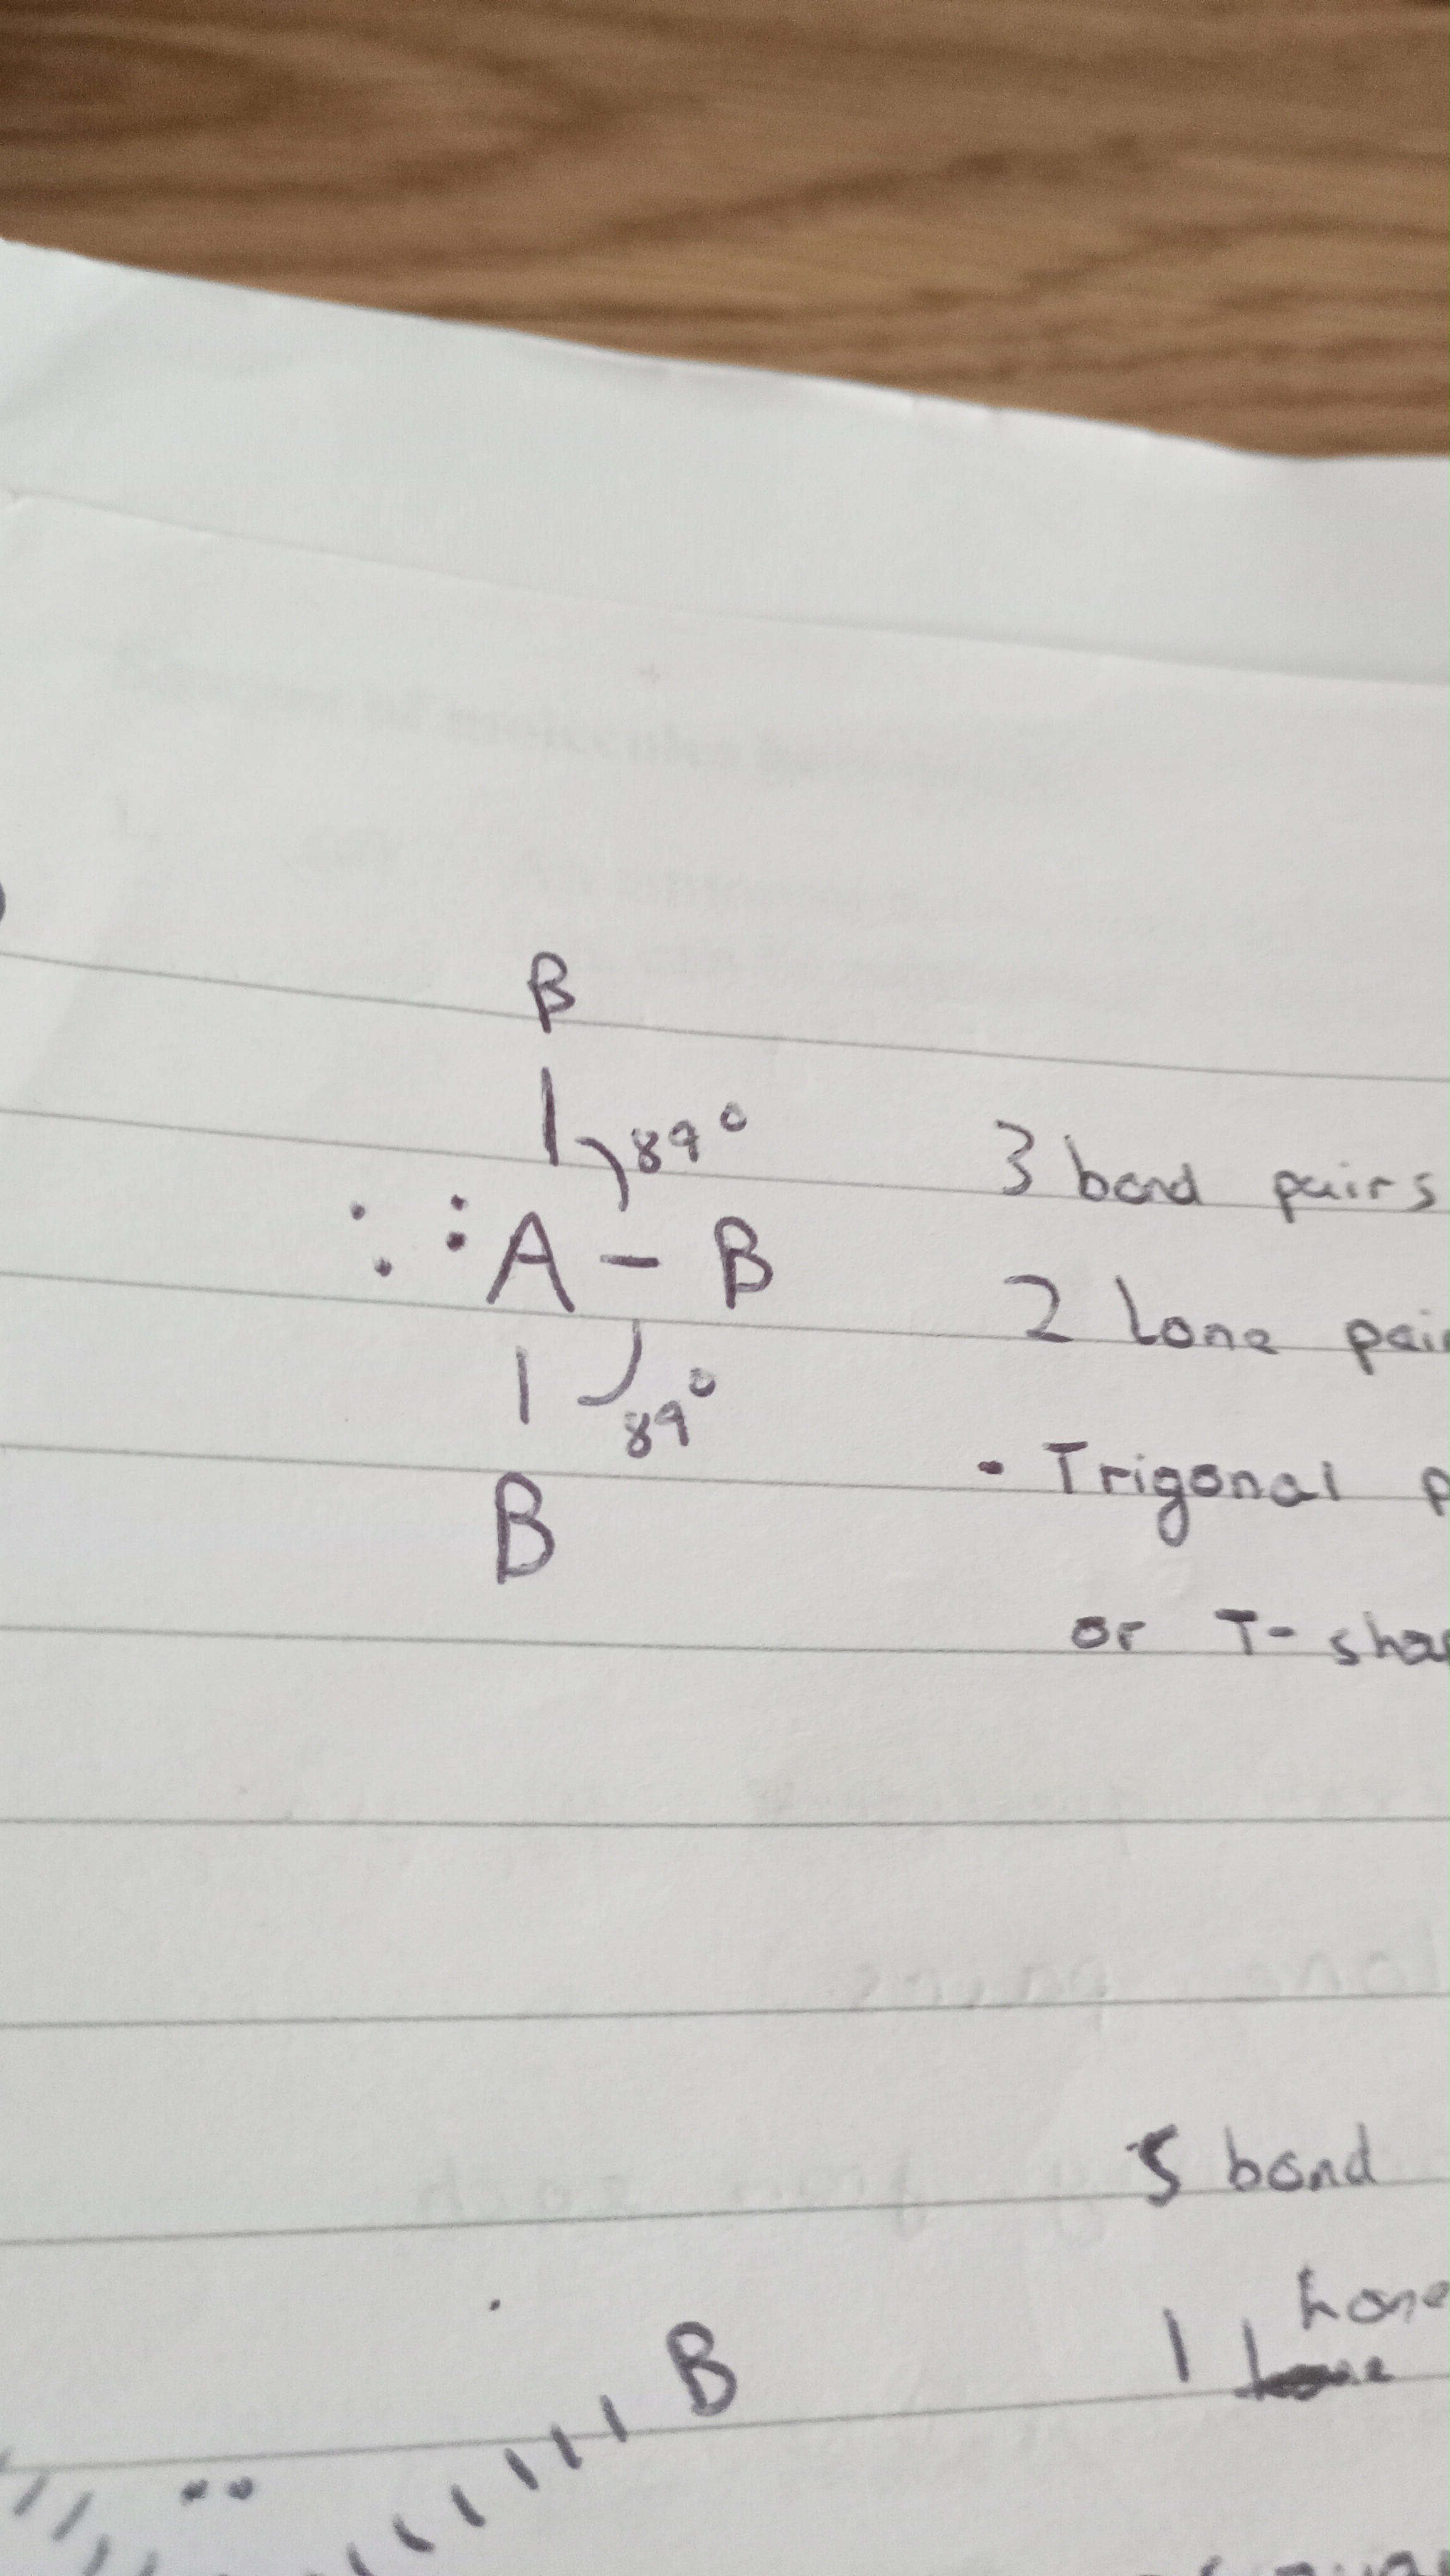 B
| 89°
: : A - B
| 89°
B
3 bond pairs
2 Lone pai
• Trigonal p
or T- sha
5 bond
1 lone
B